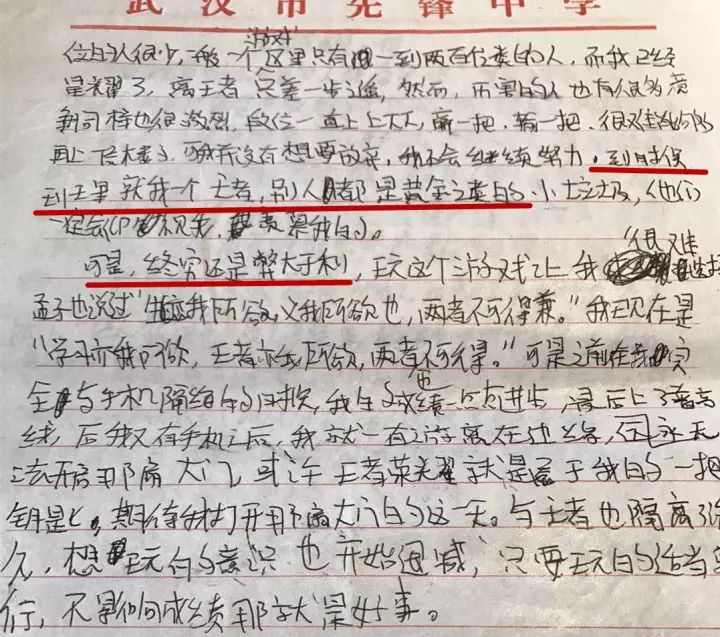 武汉市先锋中学
游戏
位的人很少,一般一个区里只有一到两百位类的人,而我已经
是星耀了,离王者只差一步之遥,然而,历害的人也有很多,竞
争同样也很激烈,段位一直上上下下,赢一把,输一把,很难
再上,可我并没有想要放弃,我不会继续努力,到时候
到王里就我一个王者,别人都是黄金之类的小垃圾,他们
一定会我的。
可是,终究还是弊大于利,玩这个游戏让我很难
孟子也说过"生亦我所欲,义我所欲也,两者不可得兼。"我现在是
"学习亦我所欲,王者亦我所欲,两者不可得。"可是之前在我完
全与手机隔绝的时候,我的成绩也一点点进步,最后上了普高
线,后我又有手机之后,我就一有
法开启那扇大门,或许王者荣耀就是属于我的一把
钥匙,期待我打开那扇大门的这一天。与王者也隔离了许
久,想玩的意识也开始退减,只要玩的适当
行,不影响成绩那就是好事。